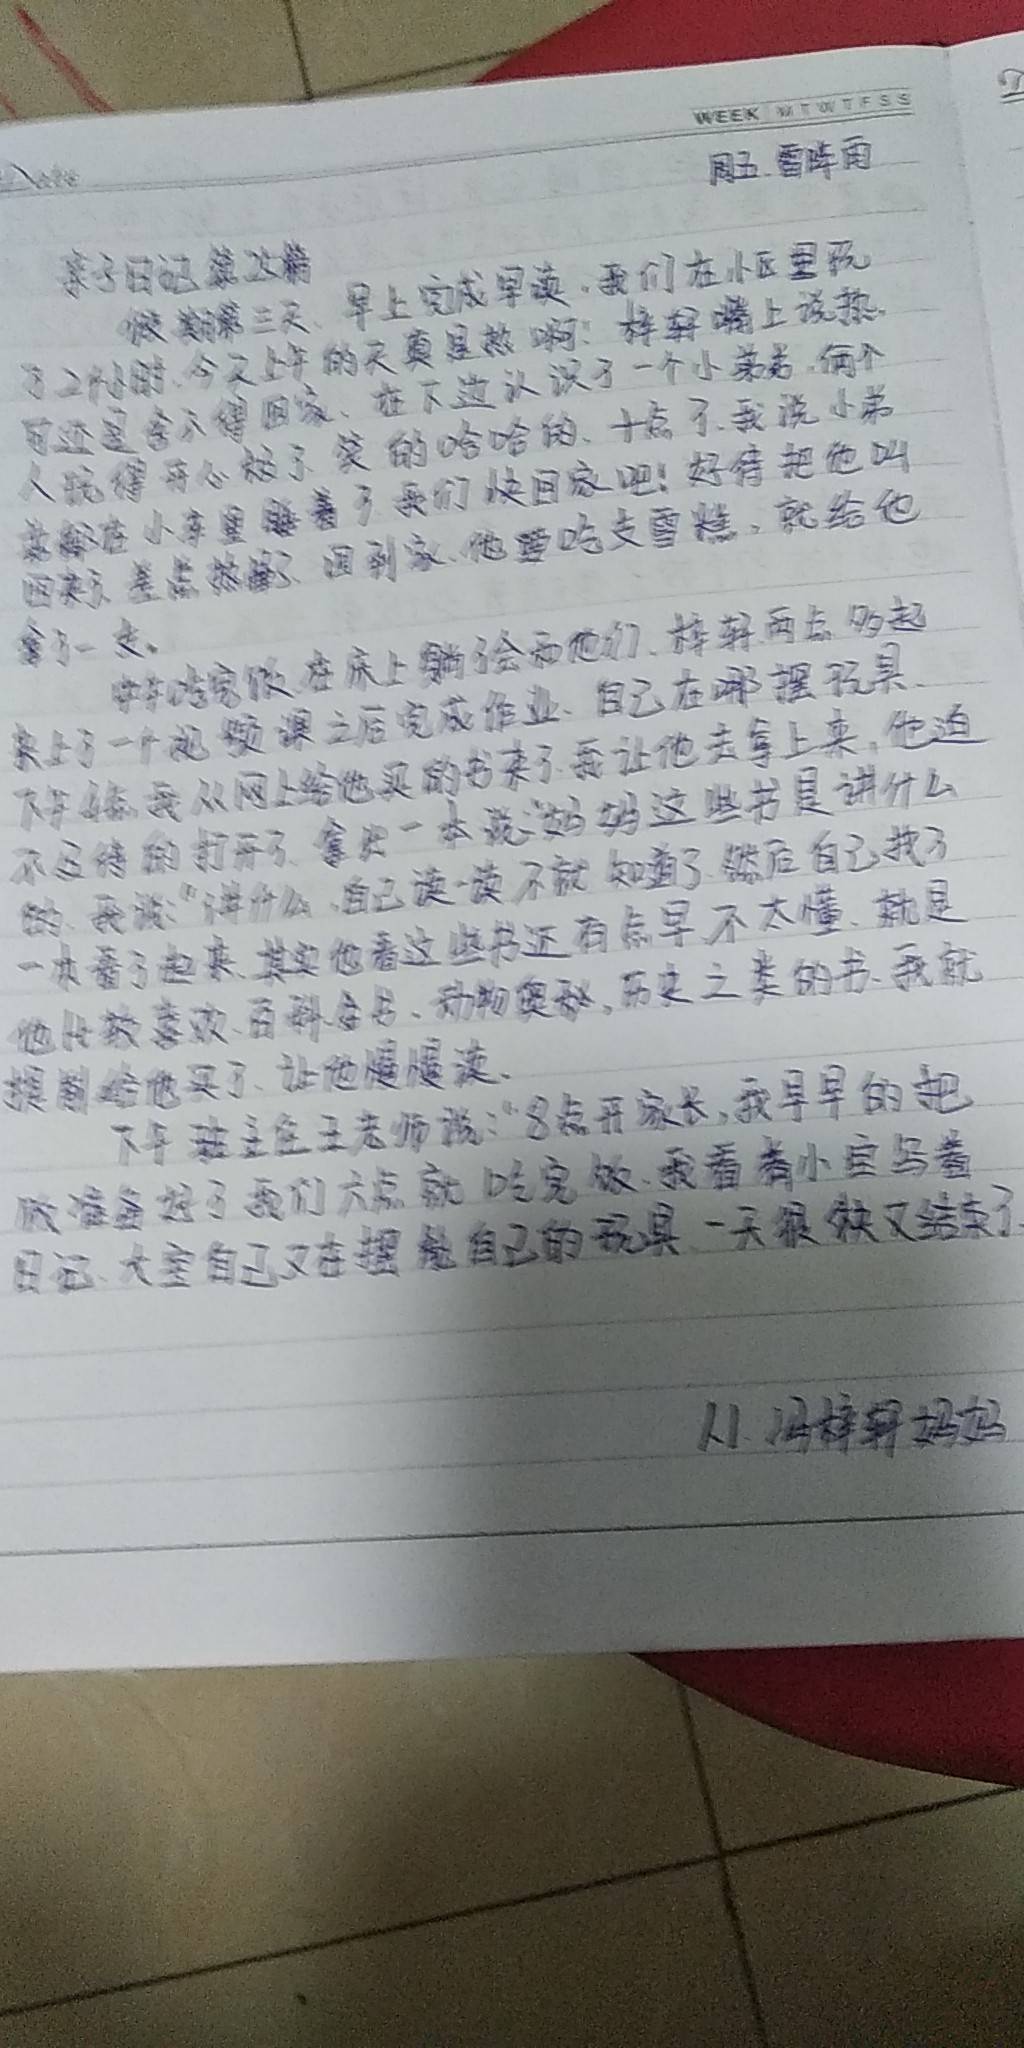 WEEK M T W T F S S
周五.雷阵雨
亲子日记第 篇
假期第三天、早上完成早读,我们在小区里玩
了2个小时,今天上午的天真是热啊!梓轩嘴上说热,
可还是舍不得回家、在下边认识了一个小弟弟,俩个
人玩得开心极了,笑的哈哈的、十点了,我说小弟
弟都在小车里睡着了我们快回家吧!好待把他叫
回来了,差点热 了、回到家、他要吃支雪糕,就给他
拿了一支。
中午吃完饭,在床上躺了会 他们、梓轩两点多起
来上了一个 视频课之后完成作业、自己在哪摆玩具、
下午 点,我从网上给他买的书来了,我让他去拿上来,他迫
不及待的打开了,拿出一本说:“妈妈这些书是讲什么
的、我说:“讲什么,自己读一读不就知道了,然后自己找了
一本看了起来,其实他看这些书还有点早,不太懂、就是
他比较喜欢、百科全书、动物奥秘,历史之类的书、我就
提前给他买了、让他慢慢读、
下午班主任王老师说:“8点开家长,我早早的把
饭准备好了我们六点就吃完饭、我看着小宝写着
日记、大宝自己又在摆 自己的玩具、一天很快又结束了、
冯梓轩妈妈